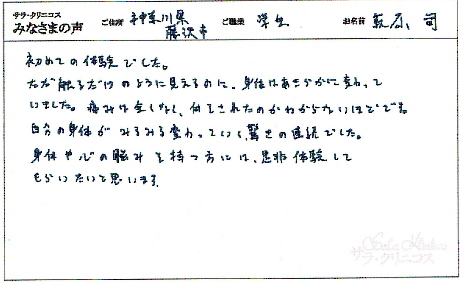 サラ・クリニコス
みなさまの声
ご住所 神奈川県
藤沢市
ご職業 学生
お名前 萩原 司
初めての体験でした。
ただ触るだけのように見えるのに、身体はあきらかに変わって
いました。痛みは全くなく、何をされたのかわからないほどです。
自分の身体がみるみる変わっていく、驚きの連続でした。
身体や心の悩みを持つ方には、是非体験して
もらいたいと思います。
サラ・クリニコス